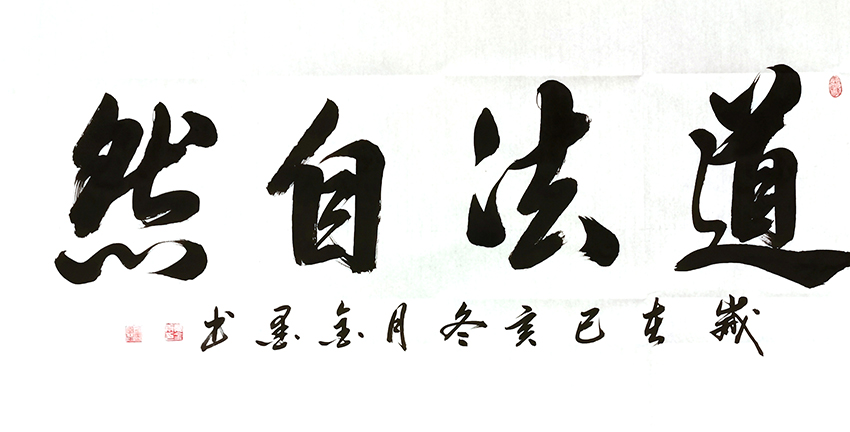 道法自然
岁在己亥冬月金墨书